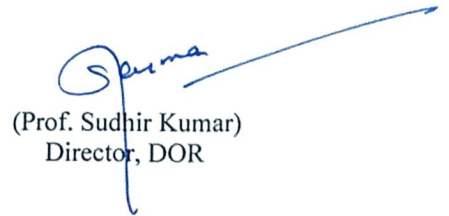 (Prof. Sudhir Kumar)
Director, DOR